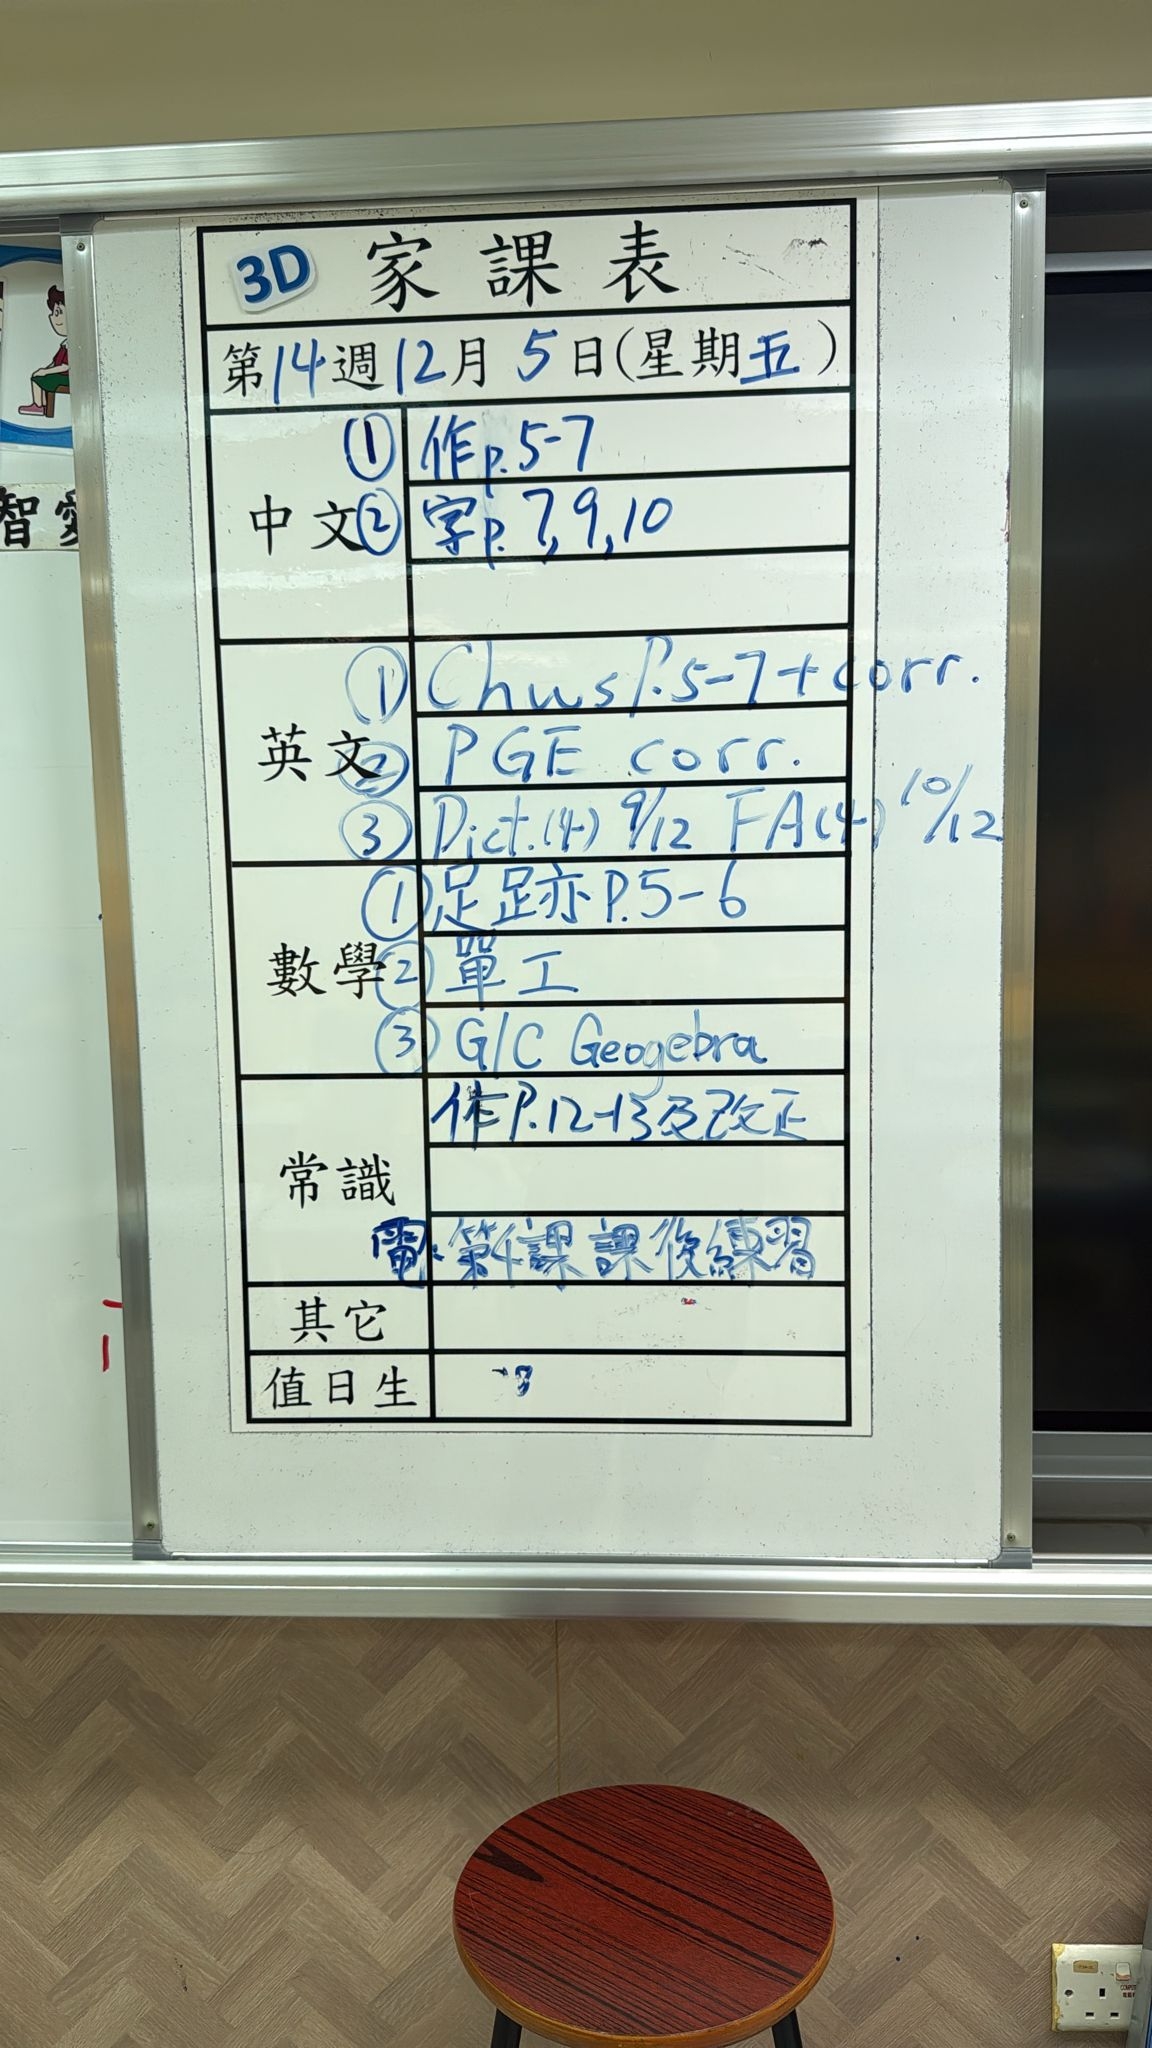 3D 家課表
第14週12月5日(星期五)
中文
① 作p.5-7
② 字p.7,9,10
英文
① Chws P.5-7 + corr.
② PGE corr.
③ Dict.(4) 9/12 FA(4) 10/12
數學
① 足跡P.5-6
② 單工
③ G/C Geogebra
常識
作P.12-13及改正
電 第4課 課後練習
其它
值日生
智愛